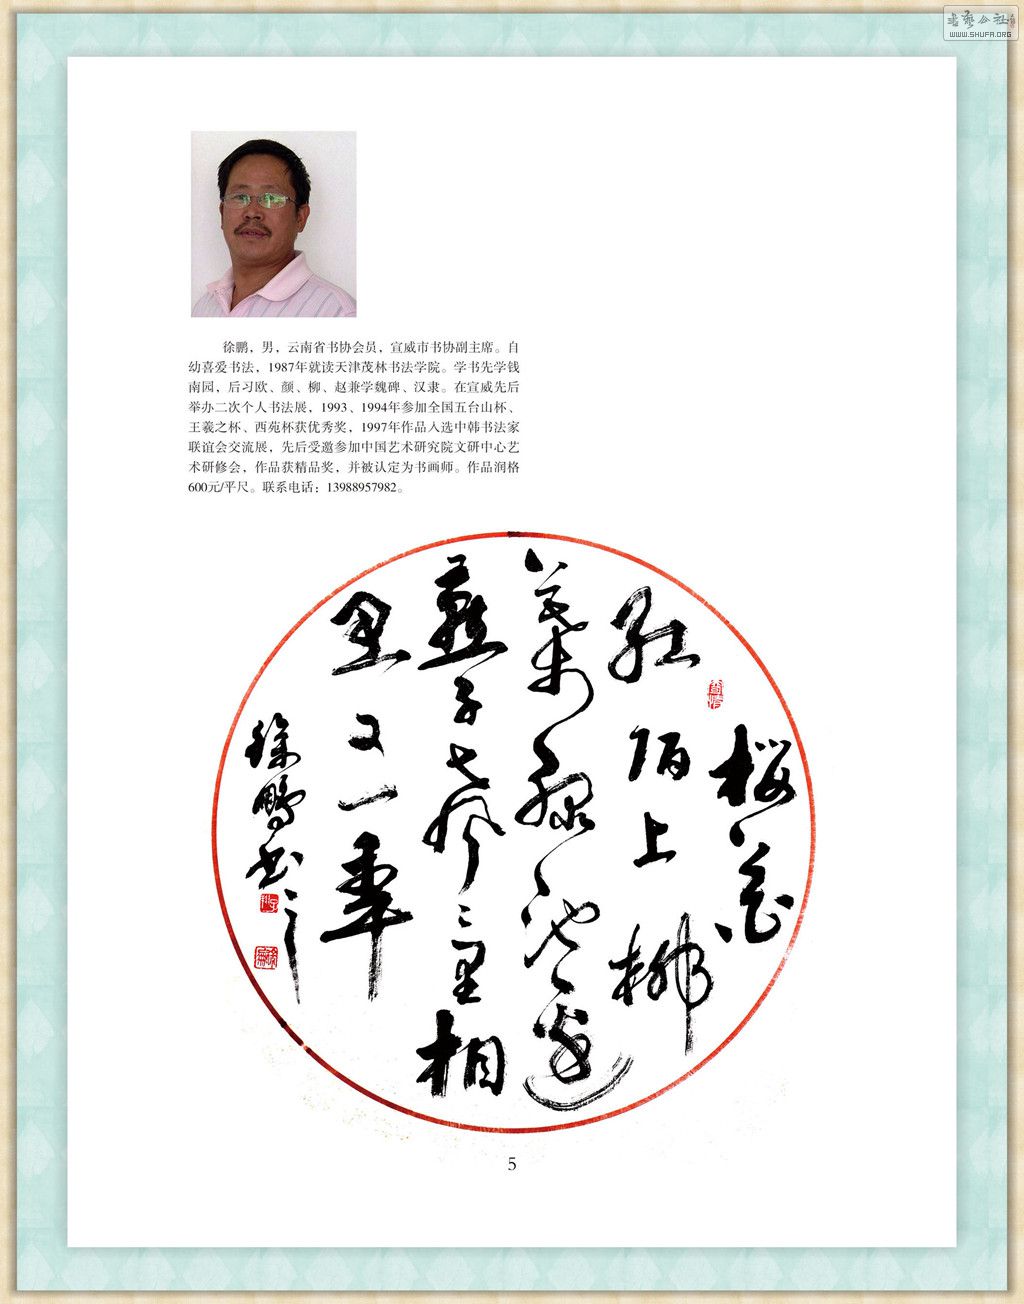 書藝公社
WWW.SHUFA.ORG
徐鹏，男，云南省书协会员，宣威市书协副主席。自
幼喜爱书法，1987年就读天津茂林书法学院。学书先学钱
南园，后习欧、颜、柳、赵兼学魏碑、汉隶。在宣威先后
举办二次个人书法展，1993、1994年参加全国五台山杯、
王羲之杯、西苑杯获优秀奖，1997年作品入选中韩书法家
联谊会交流展，先后受邀参加中国艺术研究院文研中心艺
术研修会，作品获精品奖，并被认定为书画师。作品润格
600元/平尺。联系电话：13988957982。
樱花
红陌上柳
葉绿池边
燕子声声里相
思又一年
徐鹏书
5